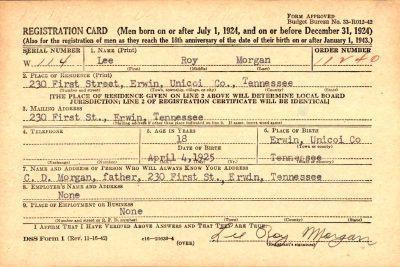 Form Approved
Budget Bureau No. 33-R012-42
REGISTRATION CARD—(Men born on or after July 1, 1924, and on or before December 31, 1924)
(Also for the registration of men as they reach the 18th anniversary of the date of their birth on or after January 1, 1943.)
SERIAL NUMBER 1. NAME (Print) ORDER NUMBER
W 114 Lee Roy Morgan 11240
(First) (Middle) (Last)
2. PLACE OF RESIDENCE (Print)
230 First Street, Erwin, Unicoi Co., Tennessee
(Number and street) (Town, township, village, or city) (County) (State)
[THE PLACE OF RESIDENCE GIVEN ON LINE 2 ABOVE WILL DETERMINE LOCAL BOARD
JURISDICTION; LINE 2 OF REGISTRATION CERTIFICATE WILL BE IDENTICAL]
3. MAILING ADDRESS
230 First St., Erwin, Tennessee
4. TELEPHONE 5. AGE IN YEARS 6. PLACE OF BIRTH
18 Erwin, Unicoi Co
DATE OF BIRTH
April 4, 1925 Tennessee
7. NAME AND ADDRESS OF PERSON WHO WILL ALWAYS KNOW YOUR ADDRESS
C. D. Morgan, father, 230 First St., Erwin, Tennessee
8. EMPLOYER'S NAME AND ADDRESS
None
9. PLACE OF EMPLOYMENT OR BUSINESS
None
I AFFIRM THAT I HAVE VERIFIED ABOVE ANSWERS AND THAT THEY ARE TRUE.
DSS Form 1 (Rev. 11-16-42) (OVER) Lee Roy Morgan
(Registrant's signature)